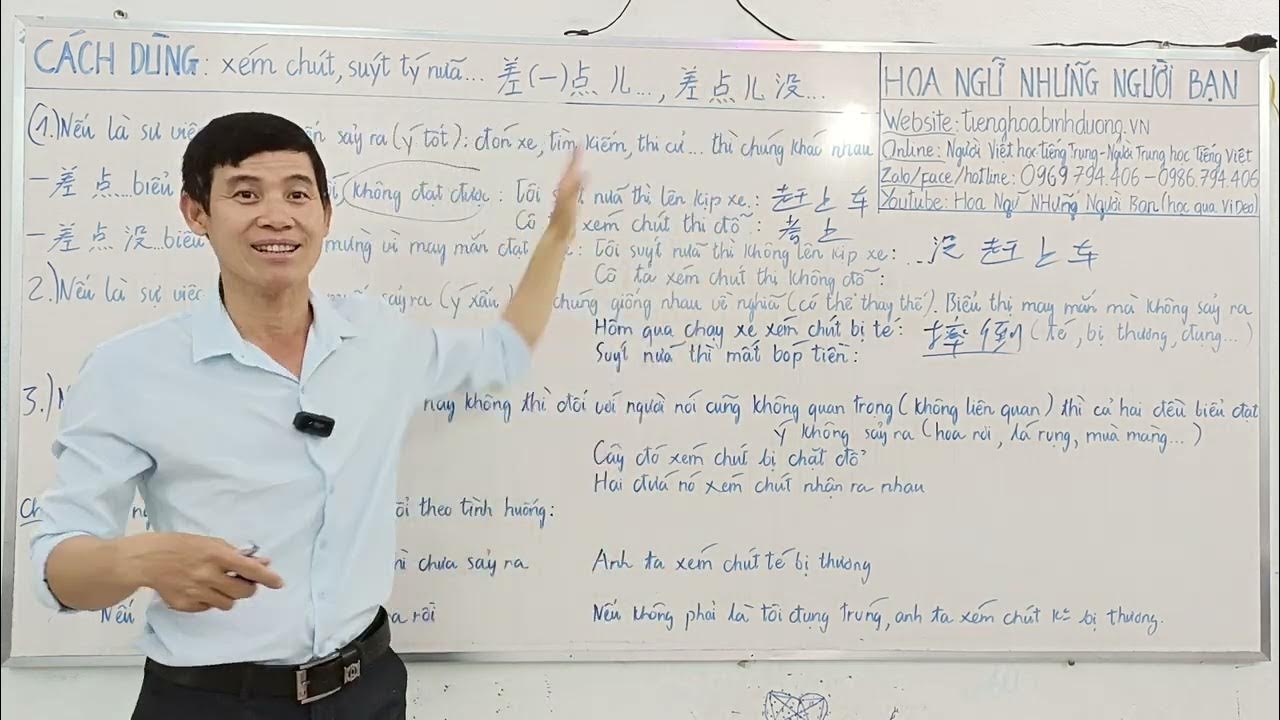 CÁCH DÙNG: xém chút, suýt tý nữa... 差(一)点儿..., 差点儿没...
HOA NGỮ NHỮNG NGƯỜI BẠN
Website: tienghoabinhduong.VN
Online: Người Việt học Tiếng Trung-Người Trung học Tiếng Việt
Zalo/face/hotline: 0969 794.406 - 0986.794.406
Youtube: Hoa Ngữ NHững Người Bạn (học qua ViDeo)
(1.) Nếu là sự việc sảy ra (ý tốt): đón xe, tìm kiếm, thi cử... thì chúng khác nhau
- 差点...biểu (không đạt được: Tôi nữa thì lên kịp xe: 赶上车
Cô xém chút thì đỗ: 考上
- 差点没...biểu mừng vì may mắn đạt : Tôi suýt nữa thì không lên kịp xe: ...没赶上车
Cô ta xém chút thì không đỗ:
2.) Nếu là sự việc sảy ra (ý xấu) chúng giống nhau về nghĩa (có thể thay thế). Biểu thị may mắn mà không sảy ra
Hôm qua chạy xe xém chút bị té: 摔倒 (té, bị thương, đụng...)
Suýt nữa thì mất bóp tiền:
3.) hay không thì đối với người nói cũng không quan trọng (không liên quan) thì cả hai đều biểu đạt
ý không sảy ra (hoa rơi, lá rụng, mùa màng...)
Cây đó xém chút bị chặt đổ
Hai đứa nó xém chút nhận ra nhau
theo tình huống:
chưa sảy ra Anh ta xém chút té bị thương
Nếu rồi Nếu không phải là tôi đụng trúng, anh ta xém chút k° bị thương.